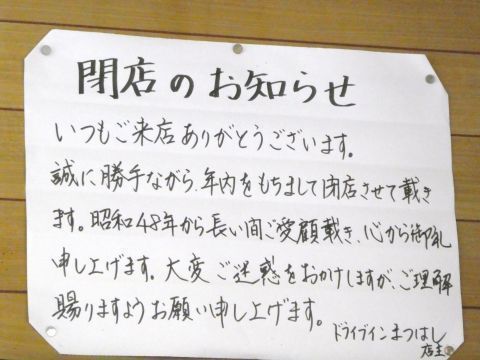 閉店のお知らせ
いつもご来店ありがとうございます。
誠に勝手ながら、年内をもちまして閉店させて戴き
ます。昭和48年から長い間ご愛顧戴き、心から御礼
申し上げます。大変ご迷惑をおかけしますが、ご理解
賜りますようお願い申し上げます。
ドライブインまつはし
店主